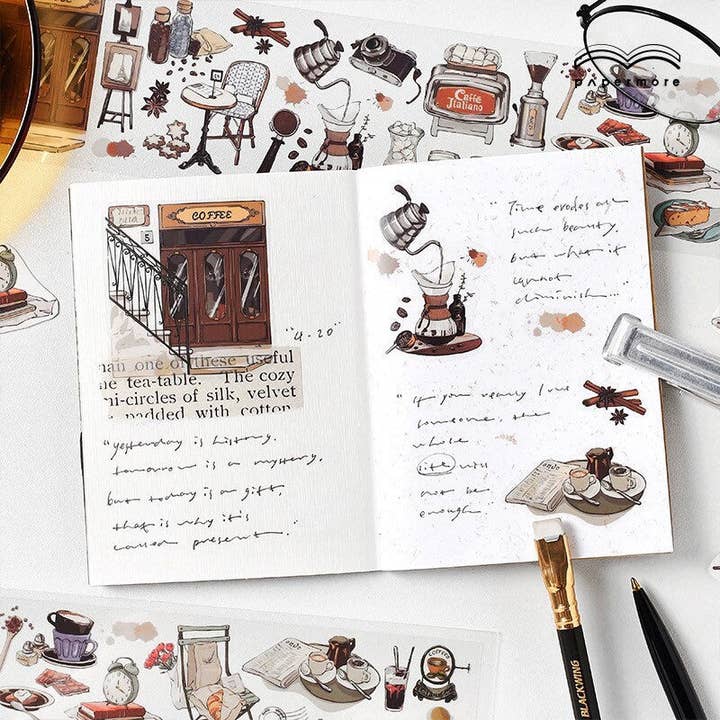 papermore
Caffè
Italiano
COFFEE
5
"4.20"
han one of these useful
he tea-table. The cozy
ni-circles of silk, velvet
padded with cotton
"yesterday is history.
tomorrow is a mystery.
but today is a gift.
that is why it's
called present."
"Time erodes all
such beauty,
but what it
cannot
diminish..."
"if you really love
someone, the
whole
life will
not be
enough.
BLACKWING